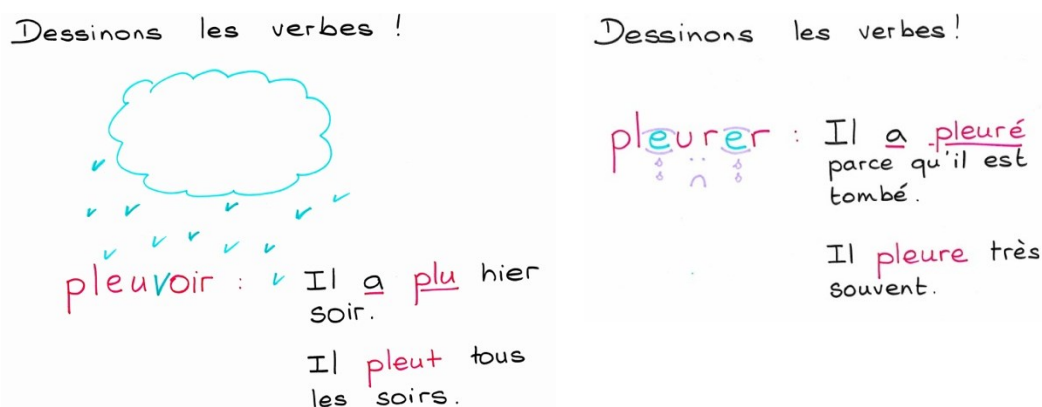 Dessinons les verbes !
pleuvoir : Il a plu hier
soir.
Il pleut tous
les soirs.
Dessinons les verbes !
pleurer : Il a pleuré
parce qu'il est
tombé.
Il pleure très
souvent.